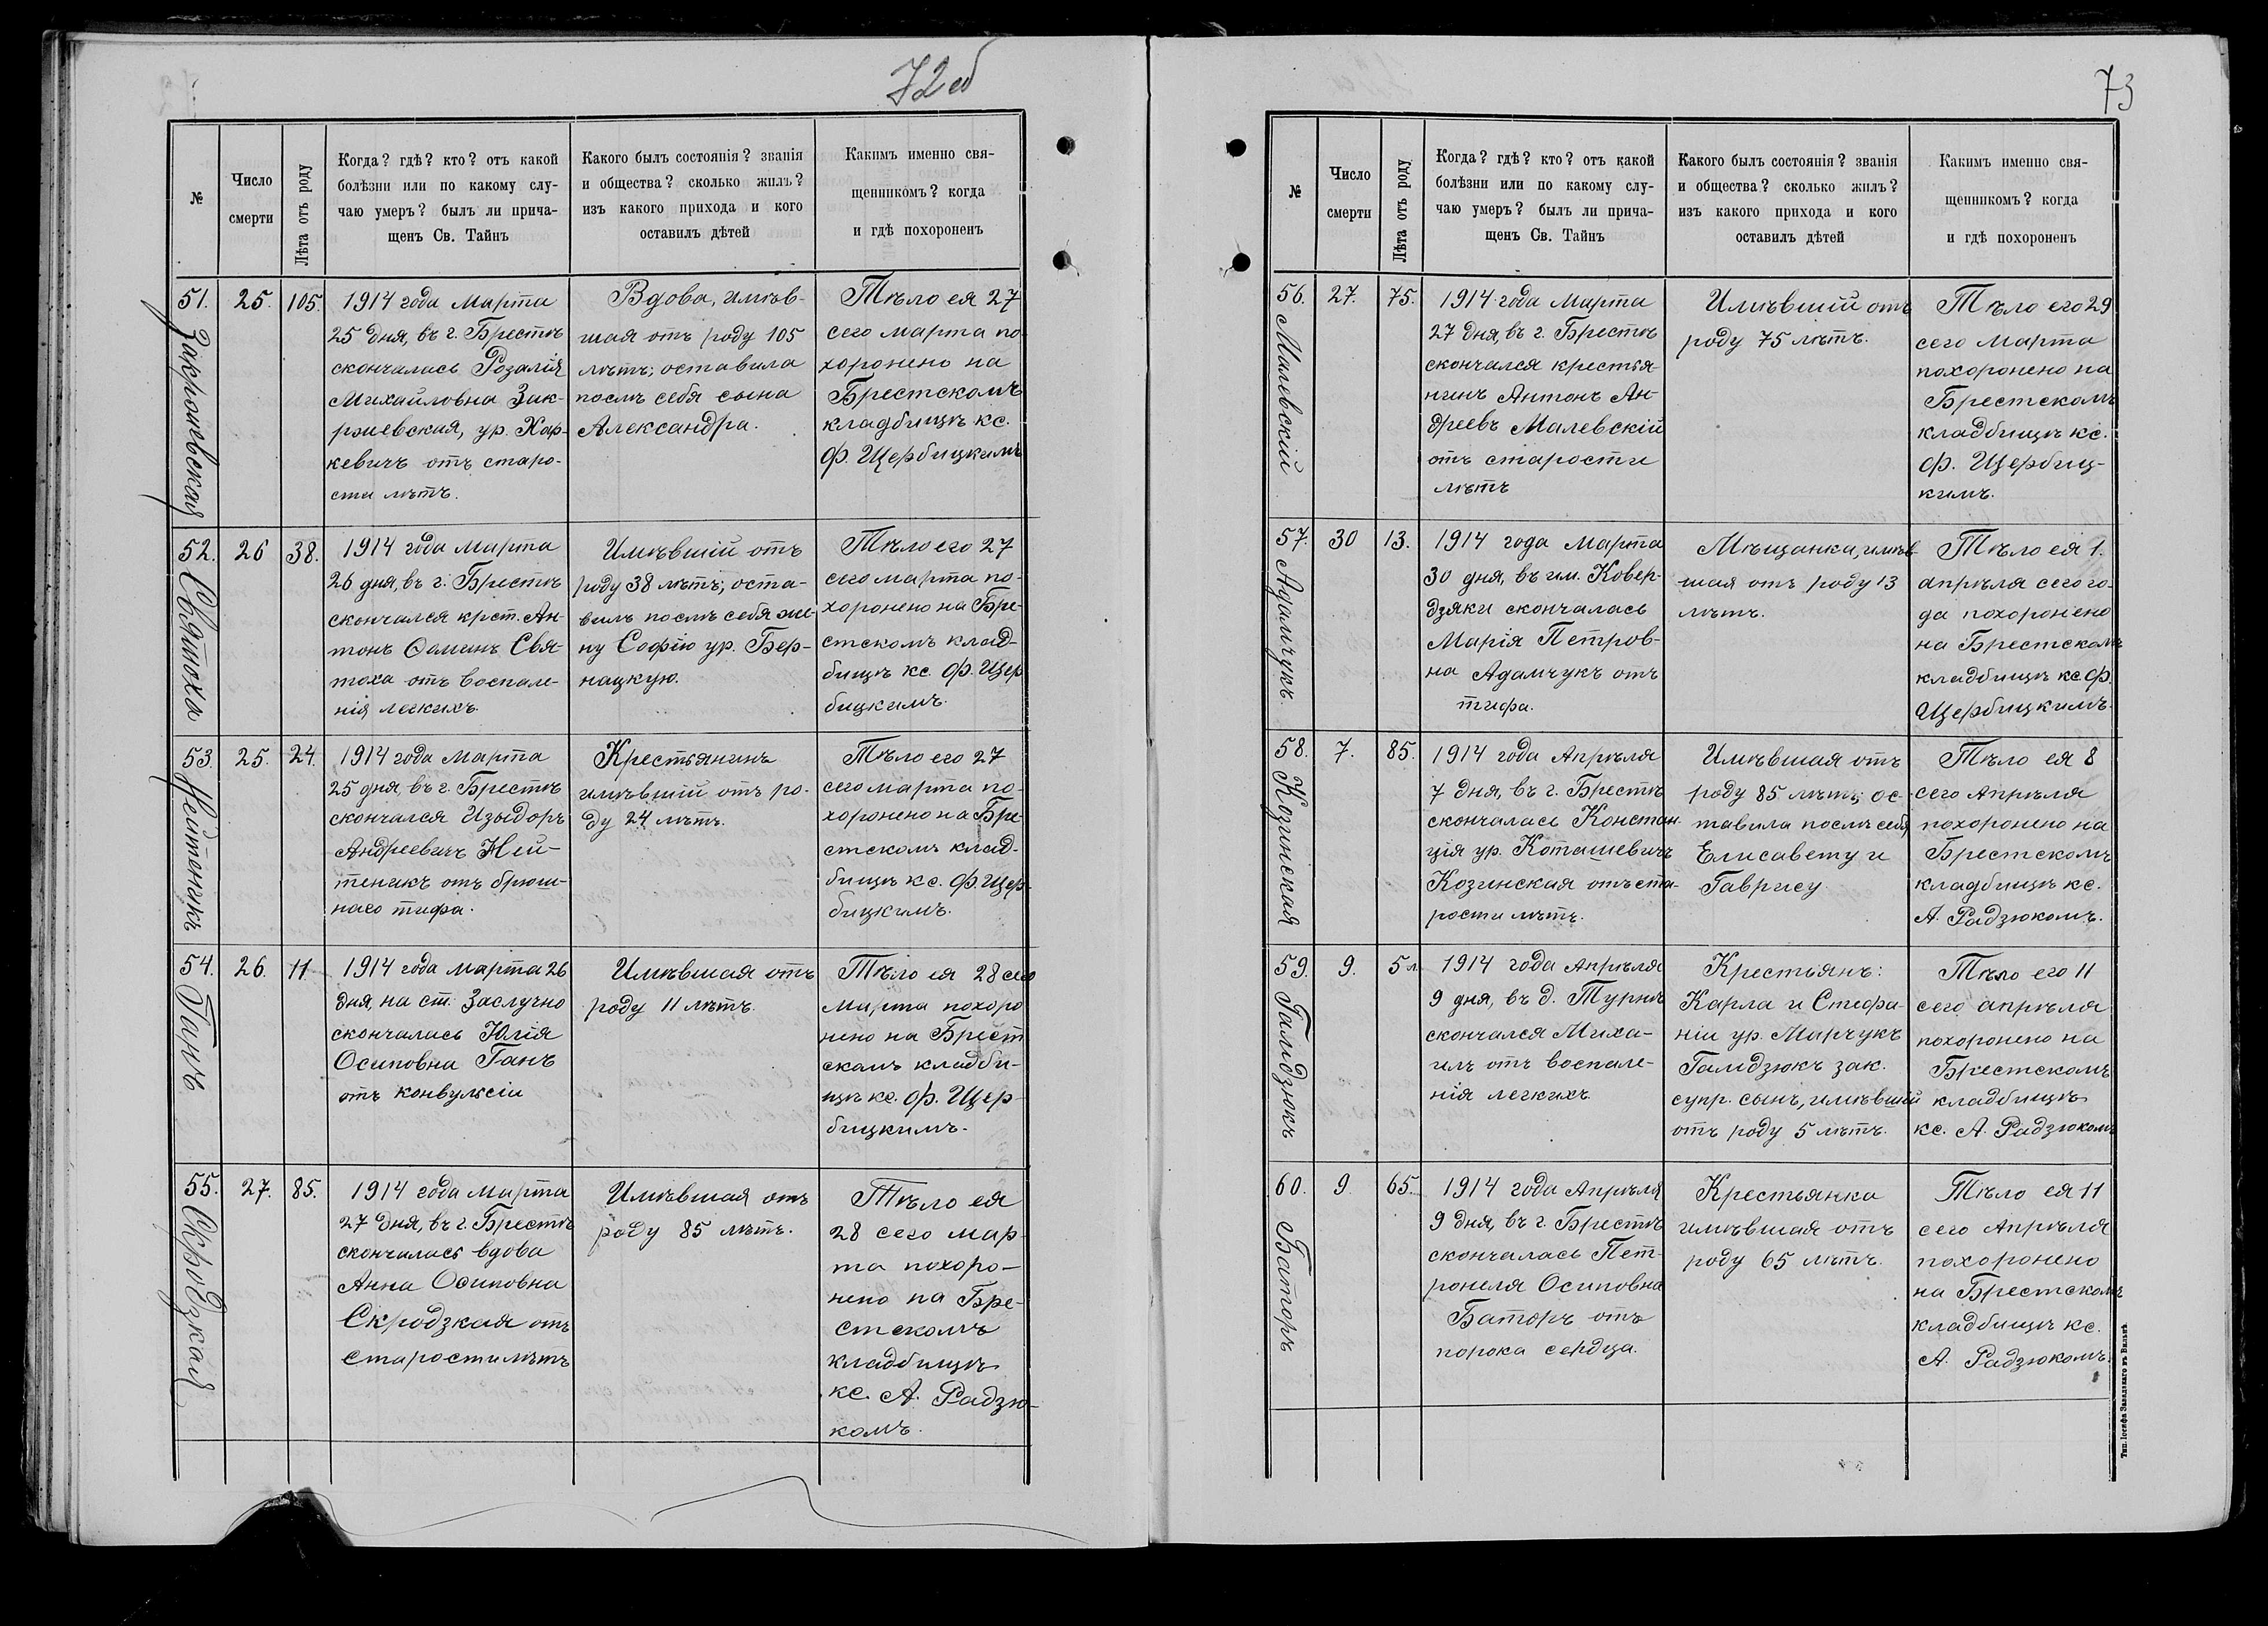 72об
№
Число
смерти
Лѣта отъ роду
Когда? гдѣ? кто? отъ какой
болѣзни или по какому слу-
чаю умеръ? былъ ли прича-
щенъ Св. Тайнъ
Какого былъ состоянія? званія
и общества? сколько жилъ?
изъ какого прихода и кого
оставилъ дѣтей
Какимъ именно свя-
щенникомъ? когда
и гдѣ похороненъ
51.
25.
105.
1914 года Марта
25 дня, въ г. Брестѣ
скончалась Розалія
Михайловна Зак-
ржевская, ур. Хар-
кевичъ отъ старо-
сти лѣтъ.
Вдова, имѣв-
шая отъ роду 105
лѣтъ; оставила
послѣ себя сына
Александра.
Тѣло ея 27
сего марта по-
хоронено на
Брестскомъ
кладбищѣ кс.
Ф. Щербицкимъ
52. Святоха
26
38.
1914 года Марта
26 дня, въ г. Брестѣ
скончался крест. Ан-
тонъ Свя-
тоха отъ воспале-
нія легкихъ.
Имѣвшій отъ
роду 38 лѣтъ; оста-
вилъ послѣ себя же-
ну Софію ур. Бер-
нацкую.
Тѣло его 27
сего марта по-
хоронено на Бре-
стскомъ клад-
бищѣ кс. Ф. Щер
бицкимъ.
53. Нейтеникъ
25.
24.
1914 года Марта
25 дня, въ г. Брестѣ
скончался Изыдоръ
Андреевичъ Ней-
теникъ отъ брюш-
наго тифа.
Крестьянинъ
имѣвшій отъ ро-
ду 24 лѣтъ.
Тѣло его 27
сего марта по-
хоронено на Бре-
стскомъ клад-
бищѣ кс. Ф. Щер-
бицкимъ.
54. Ганъ
26.
11
1914 года марта 26
дня, на ст. Заслучно
скончалась Юлія
Осиповна Ганъ
отъ конвульсіи
Имѣвшая отъ
роду 11 лѣтъ.
Тѣло ея 28 сего
Марта похоро
нено на Брест
скомъ кладби-
щѣ кс. Ф. Щер-
бицкимъ.
55. Скродзкая
27.
85.
1914 года Марта
27 дня, въ г. Брестѣ
скончалась вдова
Анна Осиповна
Скродзкая отъ
старости лѣтъ
Имѣвшая отъ
роду 85 лѣтъ.
Тѣло ея
28 сего мар-
та похоро-
нено на Бре-
стскомъ
кладбищѣ
кс. А. Радзю-
комъ.
73
№
Число
смерти
Лѣта отъ роду
Когда? гдѣ? кто? отъ какой
болѣзни или по какому слу-
чаю умеръ? былъ ли прича-
щенъ Св. Тайнъ
Какого былъ состоянія? званія
и общества? сколько жилъ?
изъ какого прихода и кого
оставилъ дѣтей
Какимъ именно свя-
щенникомъ? когда
и гдѣ похороненъ
56. Малевскій
27.
75.
1914 года Марта
27 дня, въ г. Брестѣ
скончался крестья-
нинъ Антонъ Ан-
дреевъ Малевскій
отъ старости
лѣтъ
Имѣвшій отъ
роду 75 лѣтъ.
Тѣло его 29
сего Марта
похоронено на
Брестскомъ
кладбищѣ кс.
Ф. Щербиц-
кимъ.
57. Адамчукъ
30
13.
1914 года Марта
30 дня, въ им. Ковер-
дзяки скончалась
Марія Петров-
на Адамчукъ отъ
тифа.
Мѣщанка, имѣв
шая отъ роду 13
лѣтъ.
Тѣло ея 1.
апрѣля сего го-
да похоронено
на Брестскомъ
кладбищѣ кс. Ф.
Щербицкимъ.
58. Козинская
7.
85.
1914 года Апрѣля
7 дня, въ г. Брестѣ
скончалась Констан-
ція ур. Коташевичъ
Козинская отъ ста-
рости лѣтъ.
Имѣвшая отъ
роду 85 лѣтъ; ос-
тавила послѣ себя
Елисавету и
Тѣло ея 8
сего Апрѣля
похоронено на
Брестскомъ
кладбищѣ кс.
А. Радзюкомъ.
59. Галидзюкъ
9.
5 л.
1914 года Апрѣля
9 дня, въ д. Турнѣ
скончался Миха-
илъ отъ воспале-
нія легкихъ.
Крестьянъ:
Карла и Стефа-
ніи ур. Марчукъ
Галидзюкъ зак.
супр. сынъ, имѣвшій
отъ роду 5 лѣтъ.
Тѣло его 11
сего апрѣля
похоронено на
Брестскомъ
кладбищѣ
кс. А. Радзюкомъ
60. Баторъ
9
65.
1914 года Апрѣля
9 дня, въ г. Брестѣ
скончалась Пет-
ронеля Осиповна
Баторъ отъ
порока сердца.
Крестьянка
имѣвшая отъ
роду 65 лѣтъ.
Тѣло ея 11
сего Апрѣля
похоронено
на Брестскомъ
кладбищѣ кс.
А. Радзюкомъ.
Тип. Іосифа Завадзкаго въ Вильнѣ